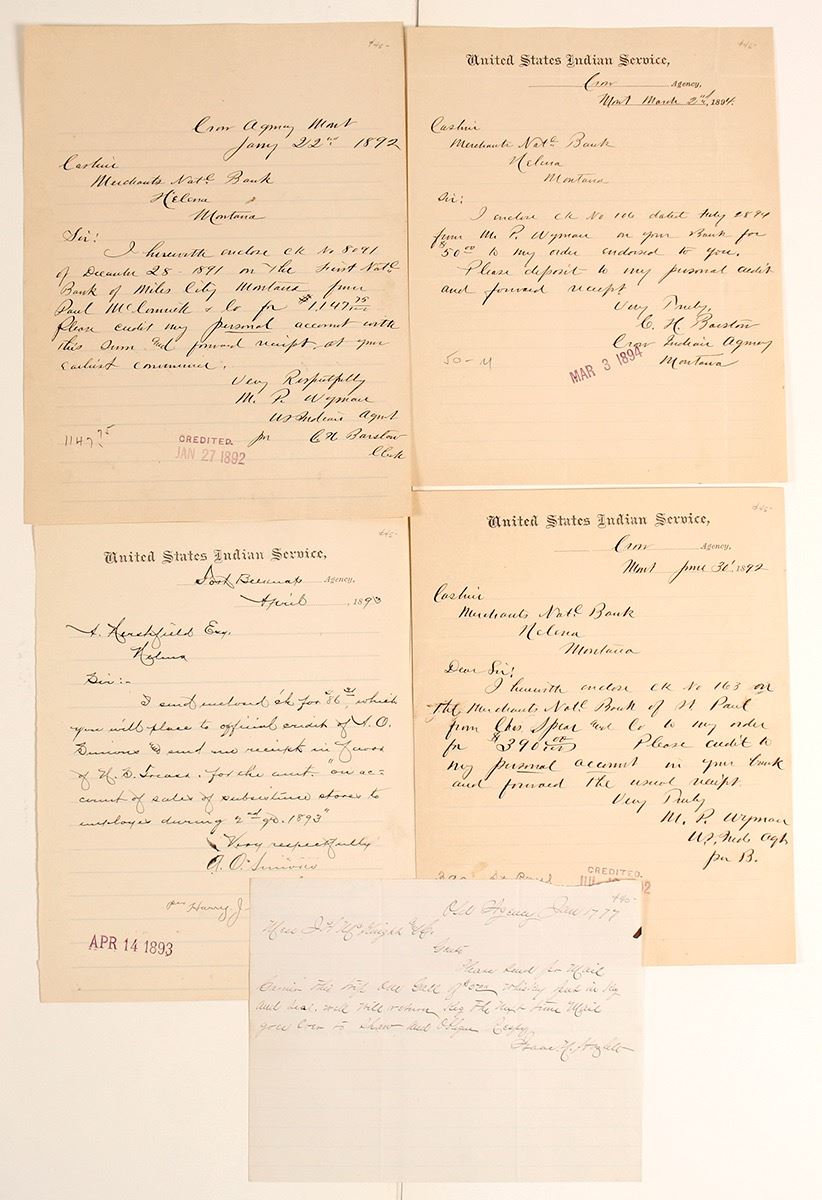 $45-
Crow Agency Mont
Jany 22nd 1892
Cashier
Merchants Natl Bank
Helena
Montana
Sir!
I herewith enclose ck No 8091
of December 28 - 1891 on the First Natl
Bank of Miles City Montana from
Paul McCormick & Co for $1,147 75/100
Please credit my personal account with
this sum and forward receipt at your
earliest convenience.
Very Respectfully
M. P. Wyman
US Indian Agent
per C H Barstow
Clerk
1147 75
CREDITED.
JAN 27 1892
$45-
United States Indian Service,
Crow Agency,
Mont March 2nd, 1894.
Cashier
Merchants Natl Bank
Helena
Montana
Sir:
I enclose ck No 106 dated
from M. P. Wyman on your Bank for
$50 00 to my order endorsed to you.
Please deposit to my personal credit
and forward receipt
Very Truly,
C. H. Barstow
Crow Indian Agency
Montana
MAR 3 1894
$45-
United States Indian Service,
Fort Belknap Agency,
April , 1893
A. Hershfield Esq.
Helena
Sir:-
I send enclosed ck for which
you will place to official credit of A. O.
Simons & send me receipt in favor
of for the amt. "on ac-
count of sales of subsistence stores to
employes during 2nd qr. 1893"
Very respectfully
A. O. Simons
per Harry J.
APR 14 1893
$45-
United States Indian Service,
Crow Agency,
Mont June 30", 1892
Cashier
Merchants Natl Bank
Helena
Montana
Dear Sir!
I herewith enclose ck No 163 on
the Merchants Natl Bank of St Paul
from Chs Spear and Co to my order
for $390 00/100 Please credit to
my personal account in your bank
and forward the usual receipt
Very Truly
M. P. Wyman
US Inds Agt
per B.
390 St Paul
CREDITED.
$45-
Old Agency Jan 17 77
Mess J H McKnight & Co.
Gents
Please Send per Mail
Carrier this trip One Gall of good whiskey put in keg
and seal, well will return keg the next time Mail
goes Over to Shaw and Oblige Respy